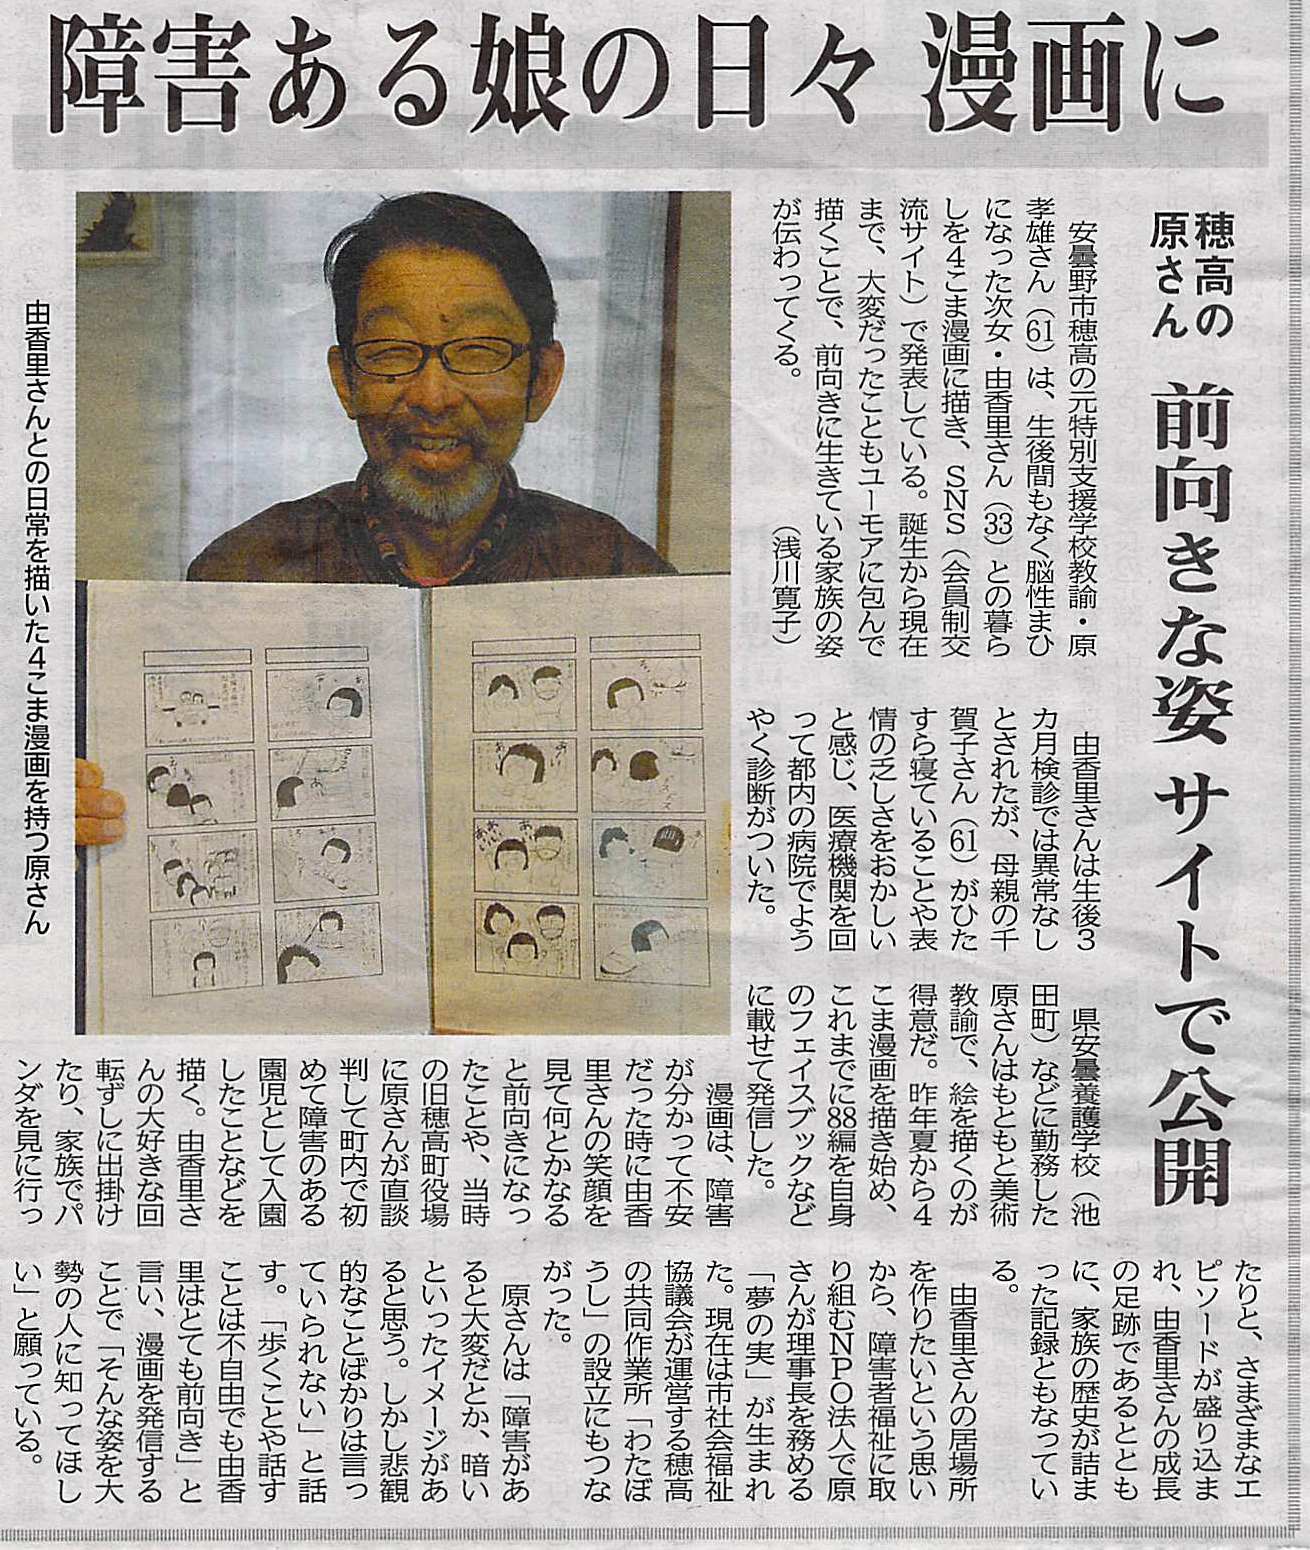 障害ある娘の日々 漫画に
穂高の
原さん
前向きな姿 サイトで公開
安曇野市穂高の元特別支援学校教諭・原
孝雄さん（61）は、生後間もなく脳性まひ
になった次女・由香里さん（33）との暮ら
しを4こま漫画に描き、SNS（会員制交
流サイト）で発表している。誕生から現在
まで、大変だったこともユーモアに包んで
描くことで、前向きに生きている家族の姿
が伝わってくる。
（浅川寛子）
由香里さんは生後3
カ月検診では異常なし
とされたが、母親の千
賀子さん（61）がひた
すら寝ていることや表
情の乏しさをおかしい
と感じ、医療機関を回
って都内の病院でよう
やく診断がついた。
県安曇養護学校（池
田町）などに勤務した
原さんはもともと美術
教諭で、絵を描くのが
得意だ。昨年夏から4
こま漫画を描き始め、
これまでに88編を自身
のフェイスブックなど
に載せて発信した。
漫画は、障害
が分かって不安
だった時に由香
里さんの笑顔を
見て何とかなる
と前向きになっ
たことや、当時
の旧穂高町役場
に原さんが直談
判して町内で初
めて障害のある
園児として入園
したことなどを
描く。由香里さ
んの大好きな回
転ずしに出掛け
たり、家族でパ
ンダを見に行っ
たりと、さまざまなエ
ピソードが盛り込ま
れ、由香里さんの成長
の足跡であるととも
に、家族の歴史が詰ま
った記録ともなってい
る。
由香里さんの居場所
を作りたいという思い
から、障害者福祉に取
り組むNPO法人で原
さんが理事長を務める
「夢の実」が生まれ
た。現在は市社会福祉
協議会が運営する穂高
の共同作業所「わたぼ
うし」の設立にもつな
がった。
原さんは「障害があ
ると大変だとか、暗い
といったイメージがあ
ると思う。しかし悲観
的なことばかりは言っ
ていられない」と話
す。「歩くことや話す
ことは不自由でも由香
里はとても前向き」と
言い、漫画を発信する
ことで「そんな姿を大
勢の人に知ってほし
い」と願っている。
由香里さんとの日常を描いた4こま漫画を持つ原さん